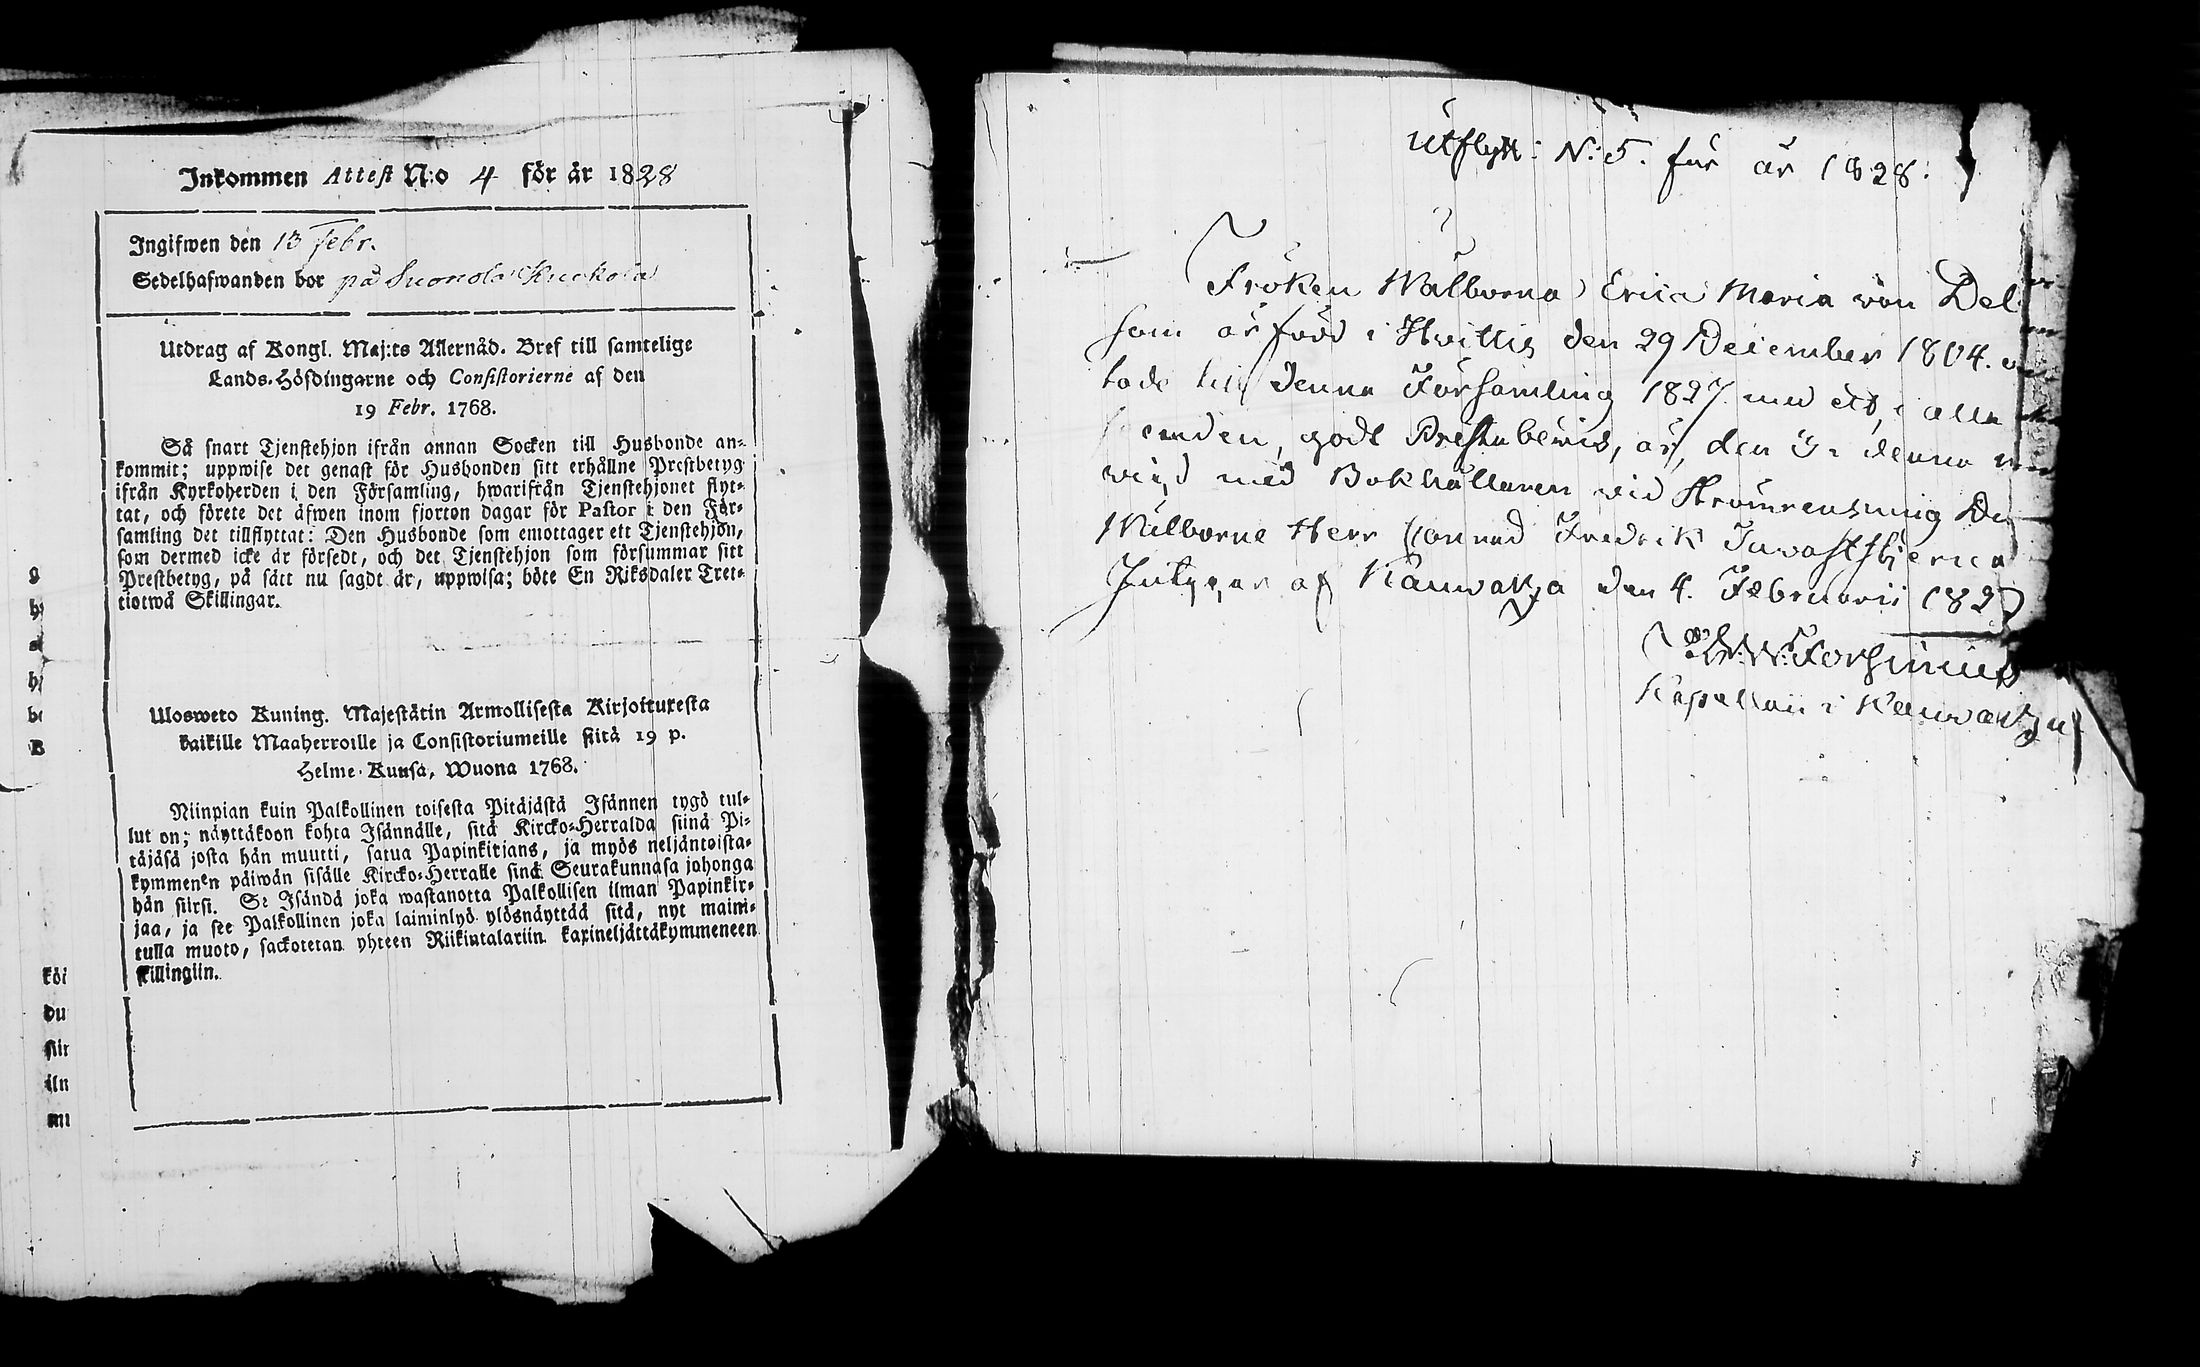 Inkommen Attest N:o 4 för år 1828
Ingifwen den 13 Febr.
Sedelhafwanden bor på Suonola
Utdrag af Kongl. Maj:ts Allernåd. Bref till samtelige
Lands-Höfdingarne och Consistorierne af den
19 Febr. 1768.
Så snart Tjenstehjon ifrån annan Socken till Husbonde an-
kommit; uppwise det genast för Husbonden sitt erhållne Prestbetyg
ifrån Kyrkoherden i den Församling, hwarifrån Tjenstehjonet flyt-
tat, och förete det äfwen inom fjorton dagar för Pastor i den För-
samling det tillflyttat: Den Husbonde som emottager ett Tjenstehjon,
som dermed icke är försedt, och det Tjenstehjon som försummar sitt
Prestbetyg, på sätt nu sagdt är, uppwisa; böte En Riksdaler Tret-
tiotwå Skillingar.
Ulosweto Kuning. Majestätin Armollisesta Kirjoituxesta
kaikille Maaherroille ja Consistoriumeille siitä 19 p.
Helme-Kuusa, Wuona 1768.
Niinpian kuin Palkollinen toisesta Pitäjästä Isännen tygö tul-
lut on; näyttäkoon kohta Isännälle, sitä Kircko-Herralda siinä Pi-
täjäsä josta hän muutti, satua Papinkirjans, ja myös neljäntoista-
kymmenen päiwän sisälle Kircko-Herralle sinä Seurakunnasa johonga
hän siirsi. Se Isändä joka wastanotta Palkollisen ilman Papinkir-
jaa, ja see Palkollinen joka laiminlyö ylösnäyttää sitä, nyt maini-
tulla muoto, sackotetan yhteen Riikintalariin kaxineljättäkymmeneen
killingiin.
g
h
a
h
be
B
köi
du
siir
iln
mu
Utflytt: N:5. för år 1828.
Fröken Wälborna Erica Maria von Del
som är född i Hvittis den 29 December 1804.
tade till denna Församling 1827 med ett, i alla
godt Prestabewis, är, den 3 i denna
vigd med Bokhållaren vid Strömrensning De
Wälborne Herr Conrad Fredrik Tavaststjerna
Intygar af Kauwatza den 4. Februarii 182
Forsinius
Kapellan i Kauwatza